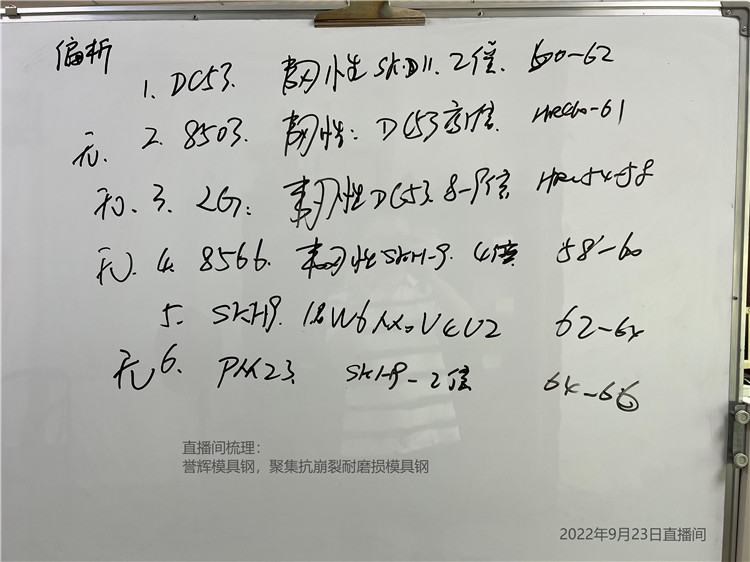 偏析
1、DC53. 韧性SKD11. 2倍. 60-62
无. 2. 8503. 韧性: DC53高1倍 HRC60-61
无. 3、2G: 韧性DC53. 8-9倍 HRC54-58
无. 4. 8566. 韧性SKH-9. 4倍 58-60
5. SKH9. W6Mo 62-64
无 6. PM23. SKH9-2倍 64-66
直播间梳理:
誉辉模具钢,聚集抗崩裂耐磨损模具钢
2022年9月23日直播间